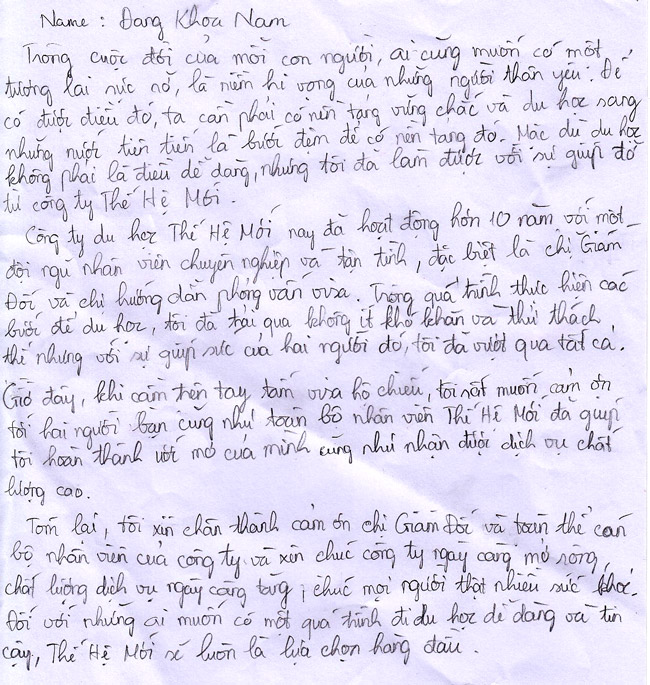 Name : Đang Khoa Nam
Trong cuộc đời của mỗi con người, ai cũng muốn có một
tương lai rực rỡ, là niềm hi vọng của những người thân yêu. Để
có được điều đó, ta cần phải có nền tảng vững chắc và du học sang
những nước tiên tiến là bước đệm để có nền tảng đó. Mặc dù du học
không phải là điều dễ dàng, nhưng tôi đã làm được với sự giúp đỡ
từ công ty Thế Hệ Mới.
Công ty du học Thế Hệ Mới nay đã hoạt động hơn 10 năm với một
đội ngũ nhân viên chuyên nghiệp và tận tình, đặc biệt là chị Giám
Đốc và chị hướng dẫn phỏng vấn visa. Trong quá trình thực hiện các
bước để du học, tôi đã trải qua không ít khó khăn và thử thách,
thế nhưng với sự giúp sức của hai người đó, tôi đã vượt qua tất cả.
Giờ đây, khi cầm trên tay tấm visa hộ chiếu, tôi rất muốn cảm ơn
tới hai người bạn cũng như toàn bộ nhân viên Thế Hệ Mới đã giúp
tôi hoàn thành ước mơ của mình cũng như nhận được dịch vụ chất
lượng cao.
Tóm lại, tôi xin chân thành cảm ơn chị Giám Đốc và toàn thể cán
bộ nhân viên của công ty và xin chúc công ty ngày càng mở rộng,
chất lượng dịch vụ ngày càng tăng, chúc mọi người thật nhiều sức khỏe.
Đối với những ai muốn có một quá trình đi du học dễ dàng và tin
cậy, Thế Hệ Mới sẽ luôn là lựa chọn hàng đầu.